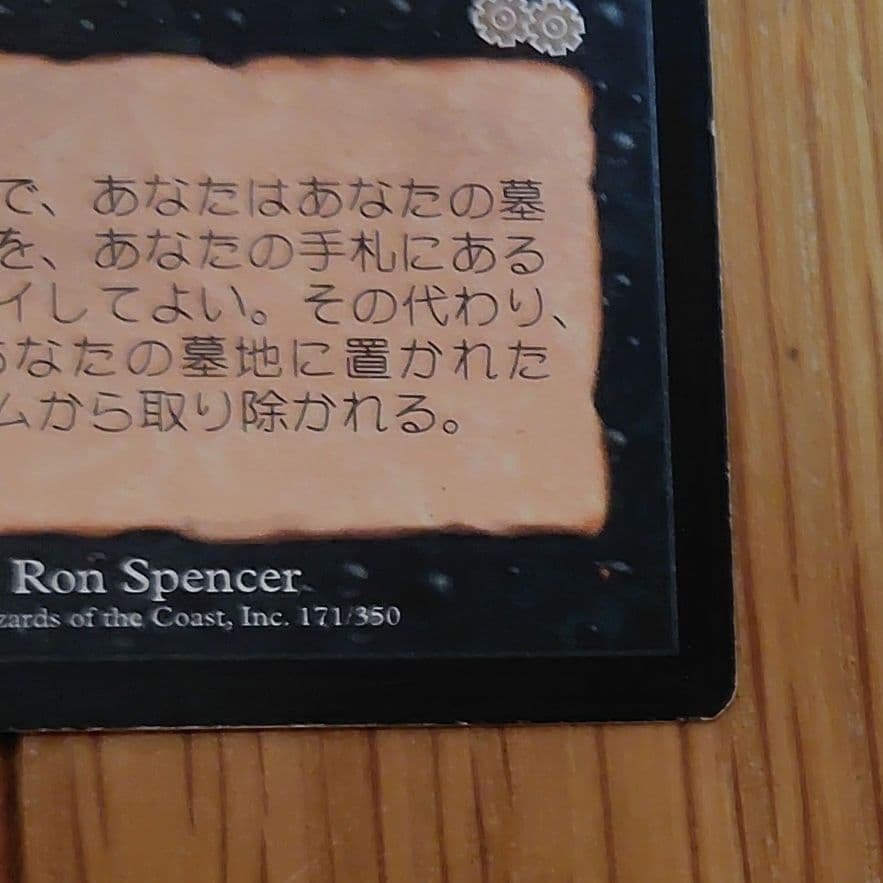 で、あなたはあなたの墓
を、あなたの手札にある
イしてよい。その代わり、
あなたの墓地に置かれた
ムから取り除かれる。
Ron Spencer
zards of the Coast, Inc. 171/350